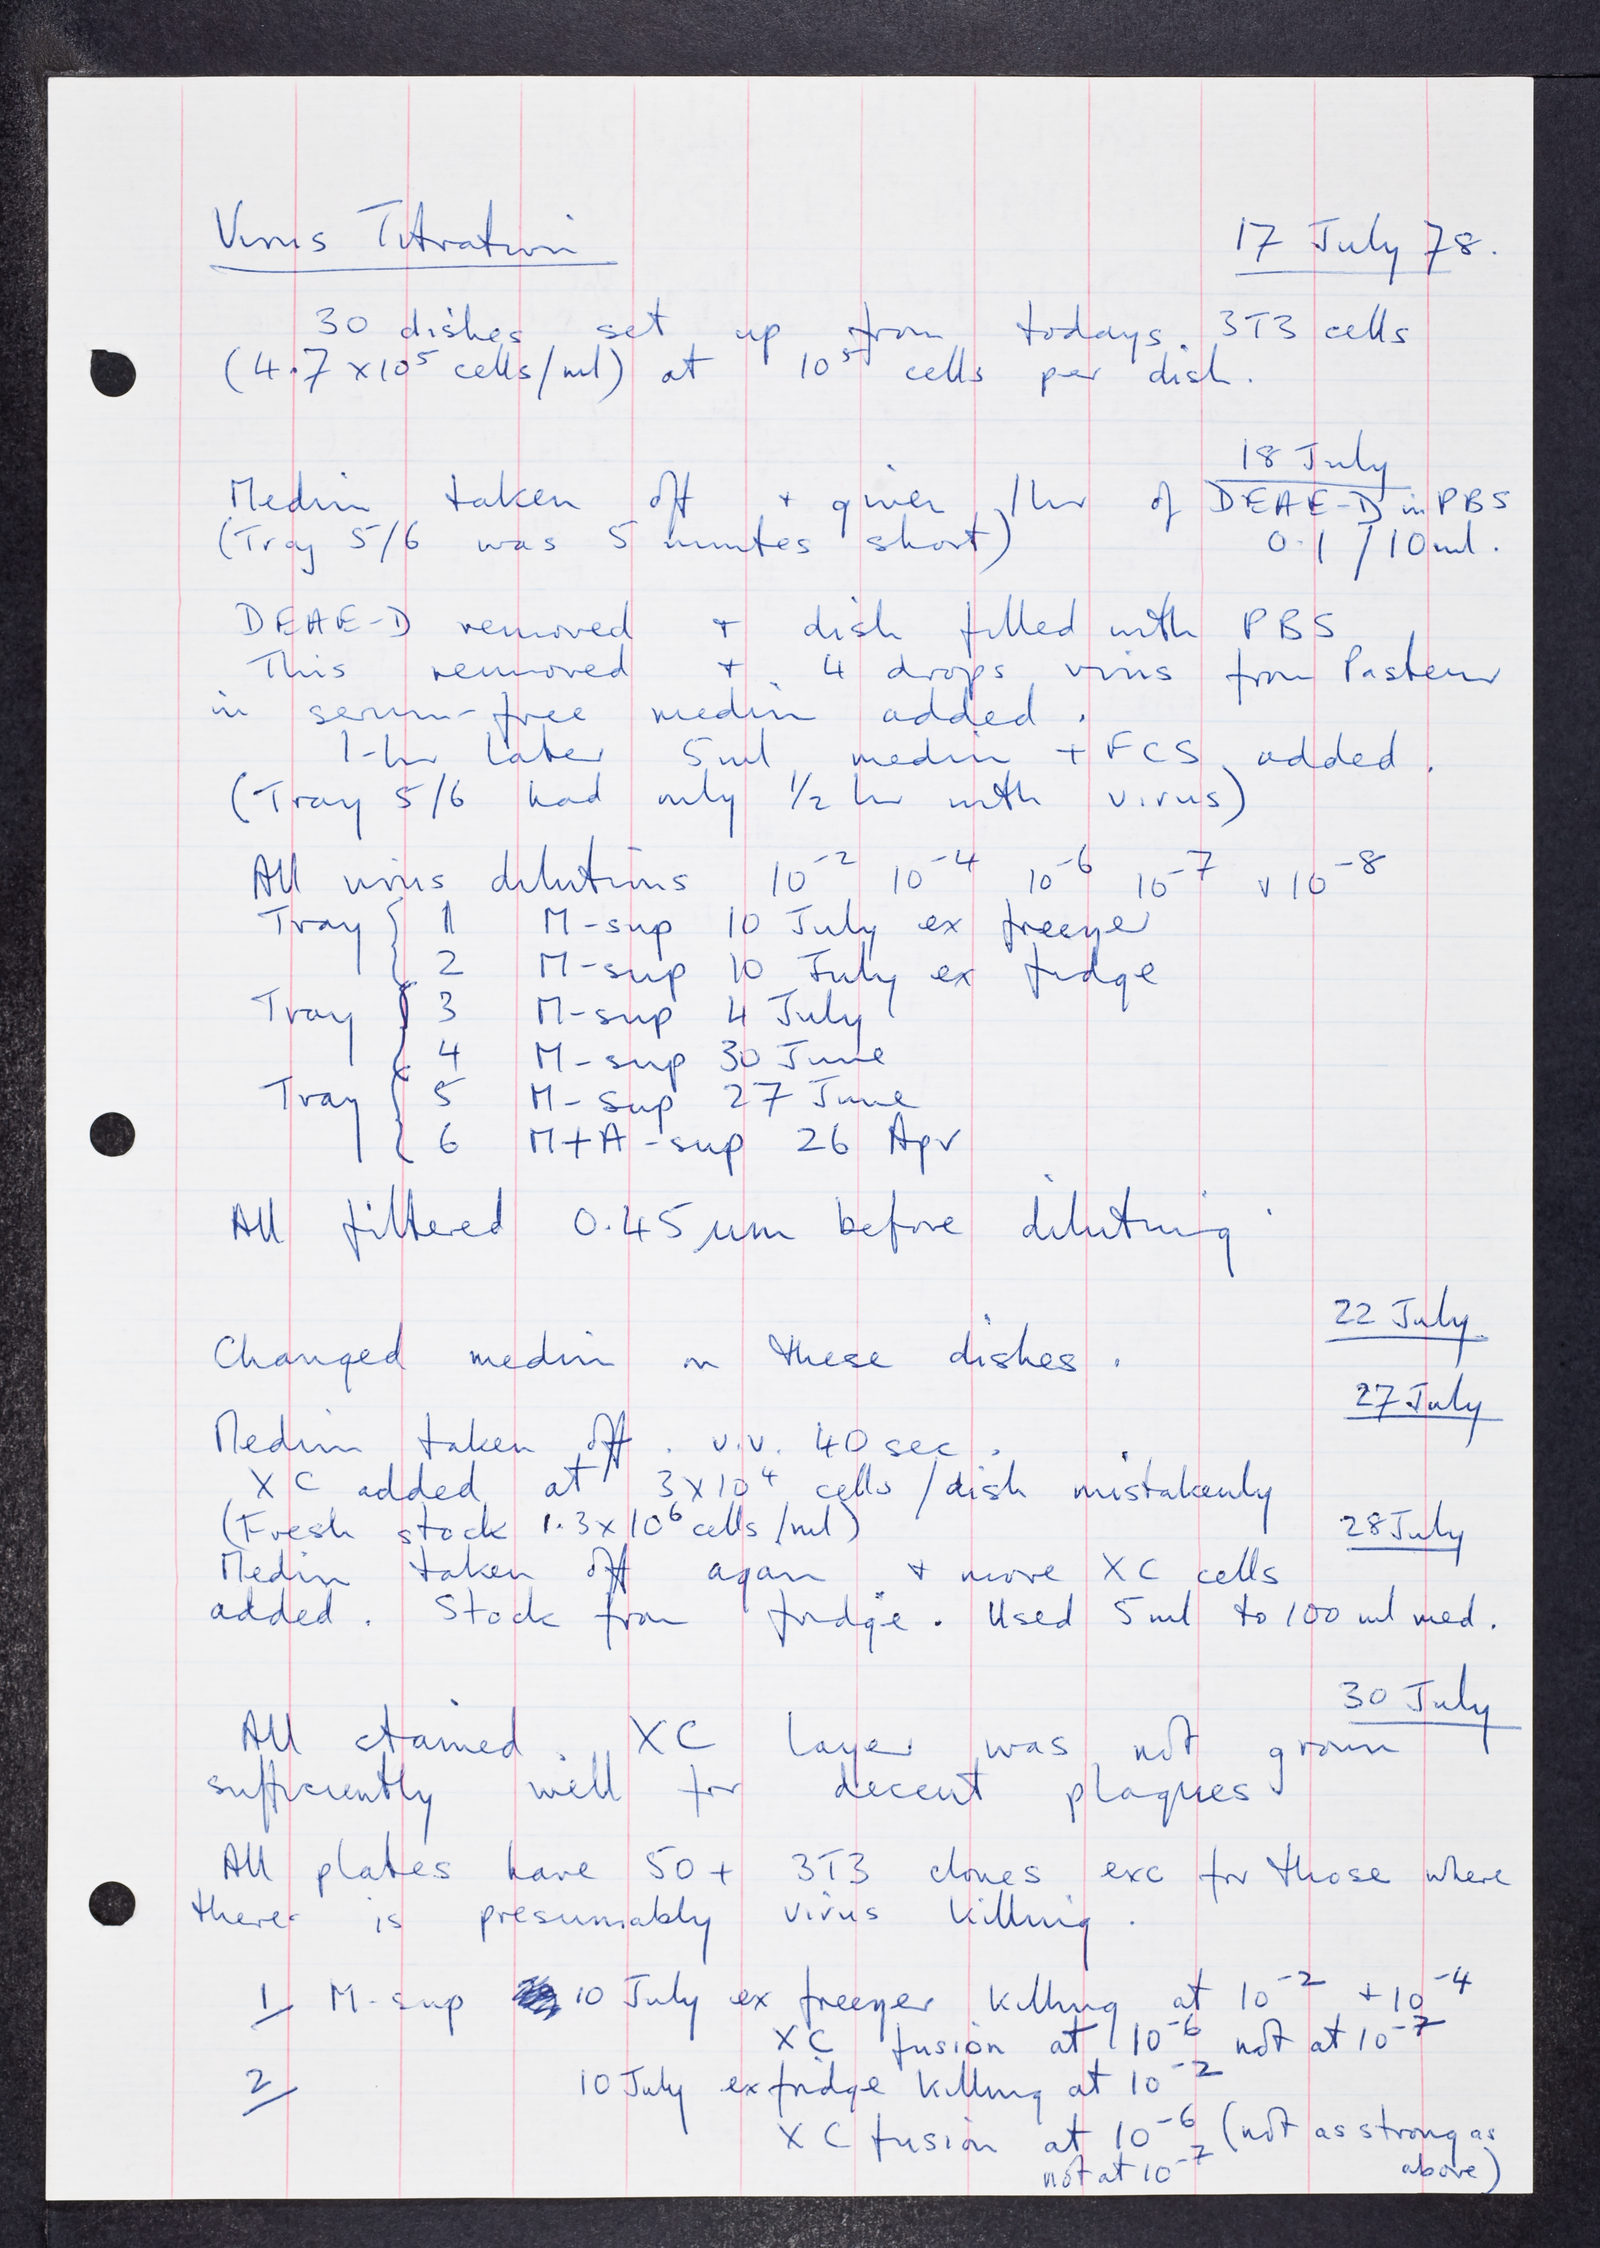 Virus Titration
17 July 78.
30 dishes set up from todays 3T3 cells
(4.7 x 10⁵ cells/ml) at 10⁵ cells per dish.
18 July
Medium taken off + given 1hr of DEAE-D in PBS
(Tray 5/6 was 5 minutes short) 0.1 / 10ml.
DEAE-D removed + dish filled with PBS
This removed + 4 drops virus from Pasteur
in serum-free medium added.
1-hr later 5ml medium + FCS added.
(Tray 5/6 had only ½ hr with virus)
All virus dilutions 10⁻² 10⁻⁴ 10⁻⁶ 10⁻⁷ + 10⁻⁸
Tray { 1 M-sup 10 July ex freezer
2 M-sup 10 July ex fridge
Tray { 3 M-sup 4 July
4 M-sup 30 June
Tray { 5 M-sup 27 June
6 M+A-sup 26 Apr
All filtered 0.45 µm before diluting.
22 July
Changed medium on these dishes.
27 July
Medium taken off. U.V. 40 sec.
XC added at 3x10⁴ cells/dish mistakenly
(Fresh stock 1.3x10⁶ cells/ml)
28 July
Medium taken off again + more XC cells
added. Stock from fridge. Used 5ml to 100 ml med.
30 July
All stained. XC layer was not grown
sufficiently well for decent plaques
All plates have 50+ 3T3 clones exc for those where
there is presumably virus killing.
1/ M-sup 10 July ex freezer killing at 10⁻² + 10⁻⁴
XC fusion at 10⁻⁶ not at 10⁻⁷
2/ 10 July ex fridge killing at 10⁻²
XC fusion at 10⁻⁶ (not as strong as
not at 10⁻⁷ above)